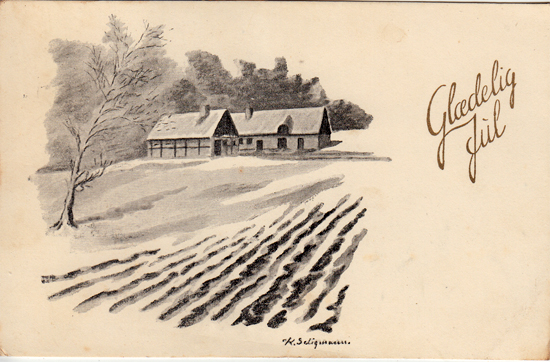 Glædelig
Jul
K. Seligmann.